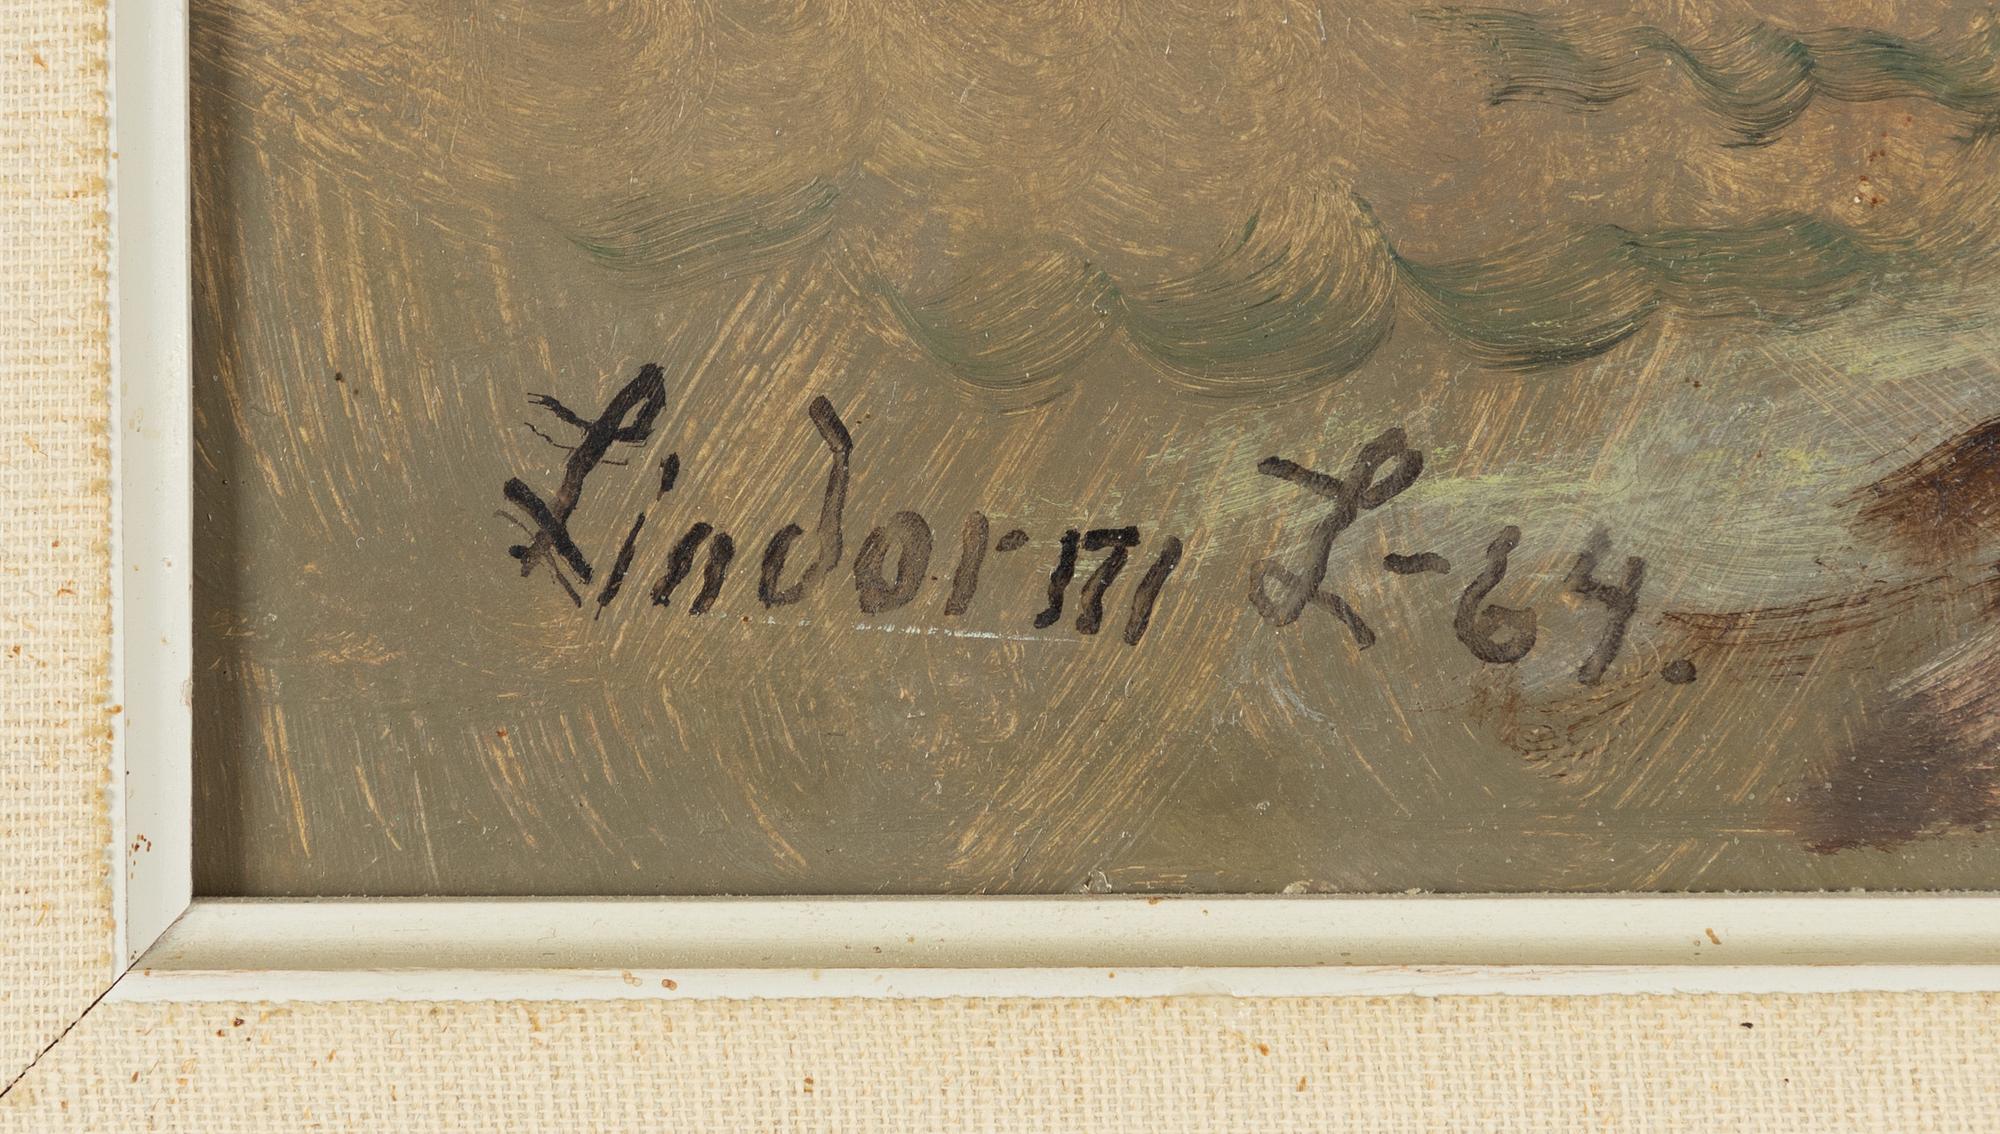 Lindorm L-64.